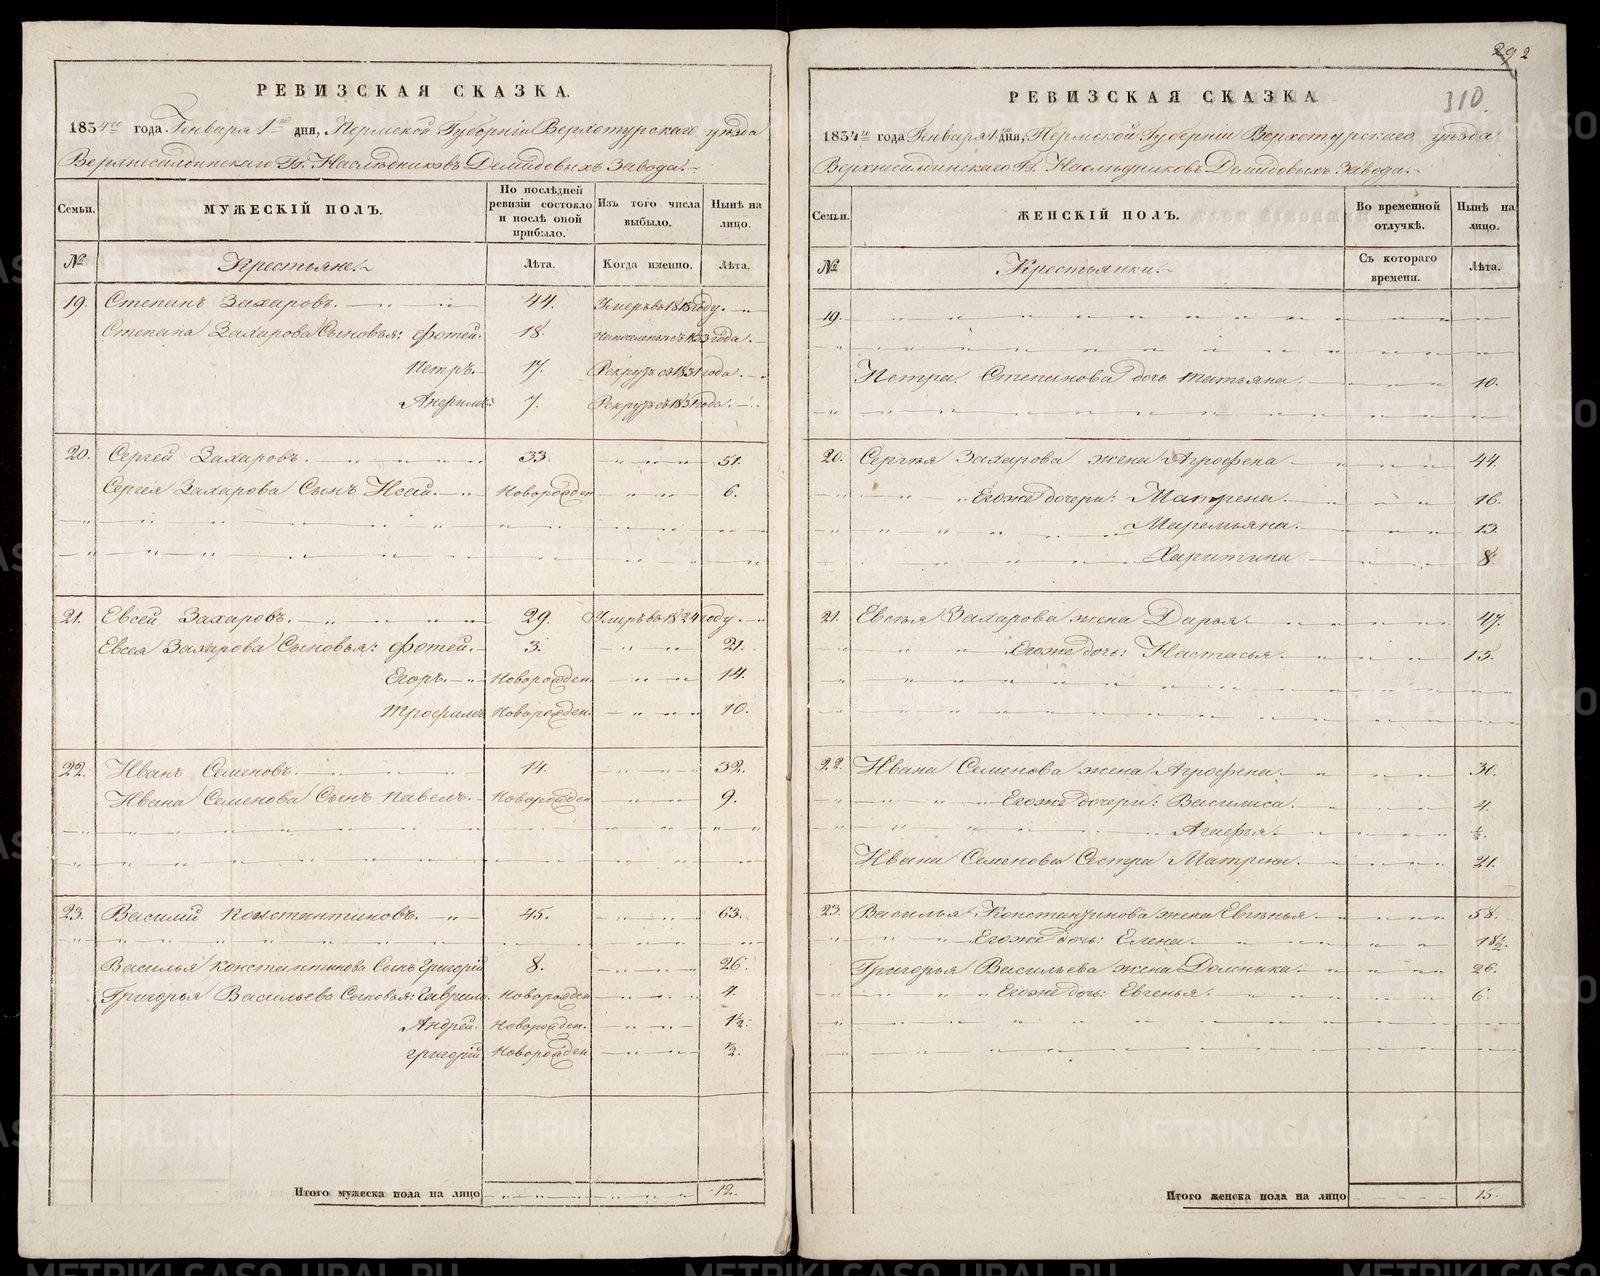 РЕВИЗСКАЯ СКАЗКА.
1834го года Генваря 1го дня, Пермской Губерніи Верхотурскаго уѣзда
Верхнесалдинскаго Гг. Наслѣдниковъ Демидовыхъ Завода.
Семьи. МУЖЕСКІЙ ПОЛЪ. По послѣдней ревизіи состояло и послѣ оной прибыло. Изъ того числа выбыло. Нынѣ на лицо.
№ Крестьяне. Лѣта. Когда именно. Лѣта.
19. Степанъ Захаровъ. 44. Умеръ въ 1818 году.
Степана Захарова Сыновья: Фотей. 18. 1833 года.
Петръ. 17. Рекрутъ съ 1831 года.
7. Рекрутъ съ 1831 года.
20. Сергей Захаровъ. 33. 51.
Сергея Захарова Сынъ Исай. Новорожден 6.
21. Евсей Захаровъ. 29. Умеръ въ 1824 году.
Евсея Захарова Сыновья: Фотей. 3. 21.
Егоръ. Новорожден. 14.
Трофимъ Новорожден. 10.
22. Иванъ Семеновъ. 14. 32.
Ивана Семенова Сынъ Павелъ. Новорожден 9.
23. Василій Константиновъ. 45. 63.
Василья Константинова Сынъ Григорій 8. 26.
Григорья Васильева Сыновья: Гаврилъ. Новорожден 4.
Андрей. Новорожден. 1½.
Григорій Новорожден ½.
Итого мужеска пола на лицо 12.
292
310.
РЕВИЗСКАЯ СКАЗКА
1834го года Генваря 1 дня, Пермской Губерніи Верхотурскаго уѣзда
Верхнесалдинскаго Гг. Наслѣдниковъ Демидовыхъ Завода.
Семьи. ЖЕНСКІЙ ПОЛЪ. Во временной отлучкѣ. Нынѣ на лицо.
№ Крестьянки. Съ котораго времени. Лѣта.
19.
Петра Степанова дочь Татьяна. 10.
20. Сергѣя Захарова жена Агрофена 44.
Егоже дочери: Матрена. 16.
Маремьяна. 13.
Харитина 8
21. Евсѣя Захарова жена Дарья. 47.
Егоже дочь: Настасья. 15.
22. Ивана Семенова жена Агрофена. 30.
Егоже дочери: Василиса. 4.
Агафья. ½.
Ивана Семенова Сестра Матрена. 21.
23. Василья Константинова жена Евгенья. 58.
Егоже дочь: Елена. 18½.
Григорья Васильева жена Домника. 26.
Егоже дочь: Евгенья. 6.
Итого женска пола на лицо 15.
METRIKI.GASO-URAL.RU